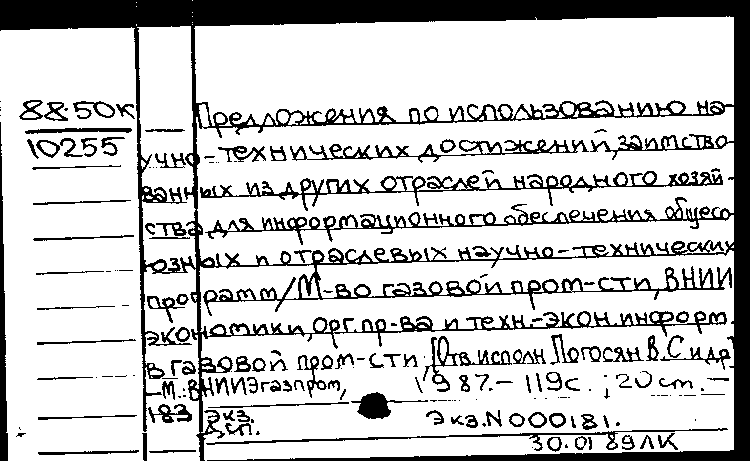 88.50К Предложения по использованию на-
10255 учно-технических достижений, заимство-
ванных из других отраслей народного хозяй-
ства для информационного обеспечения общесо-
юзных и отраслевых научно-технических
программ/М-во газовой пром-сти, ВНИИ
экономики, орг. пр-ва и техн.-экон. информ.
в газовой пром-сти; [Отв. исполн Погосян В.С и др]
—М.: ВНИИЭгазпром, 1987.— 119с. ; 20 см. —
183 экз.
Д.сп. Экз.N 000181.
30.01 89 ЛК